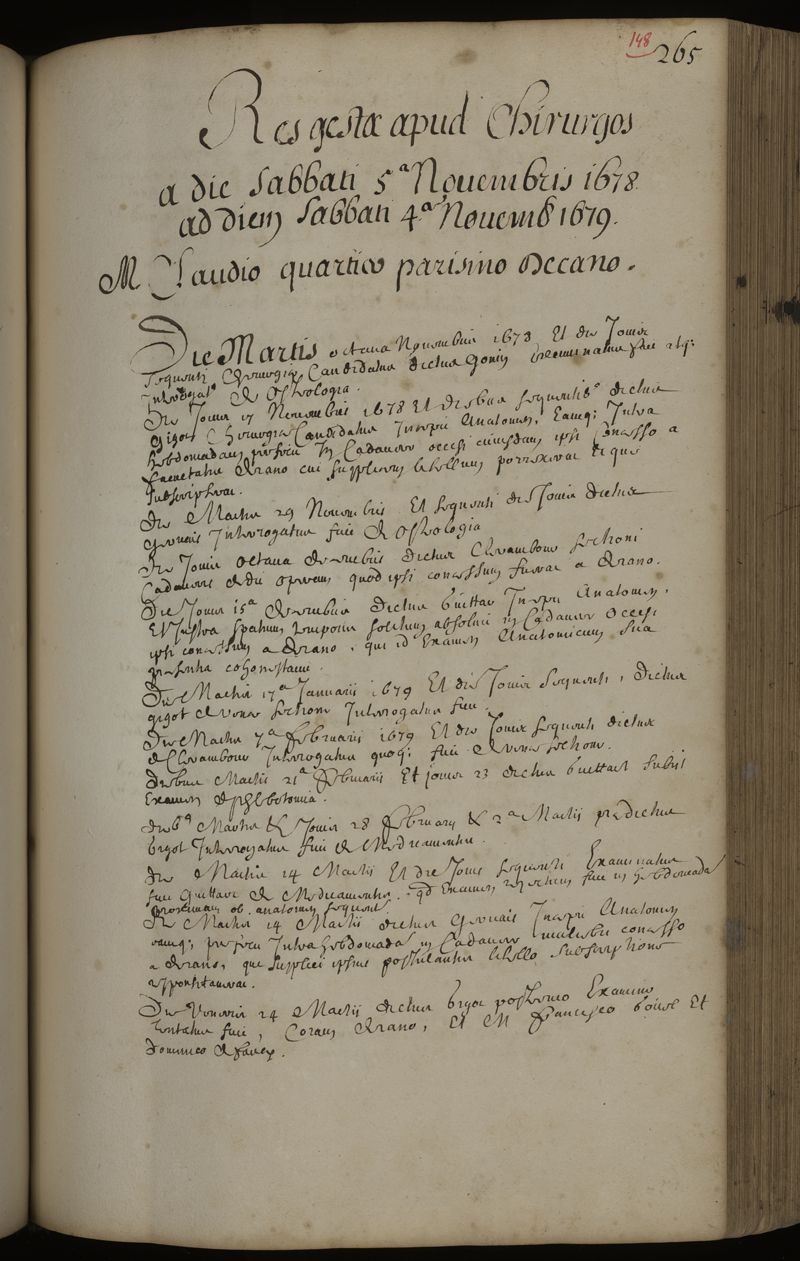 148
265
Res gestæ apud Chirurgos
a die Sabbati 5a Nouembris 1678
ad diem Sabbati 4a Nouemb 1679.
M Claudio quartier parisino Decano.
Die Martis octaua Nouembris 1678 Et die Jouis
sequenti Chirurgiæ Candidatus dictus
Interrogatus de Osteologia.
Die Jouis 17 Nouembris 1678 Et diebus sequentibus dictus
gigot Chirurgiæ Candidatus Incepit Anatomen, Eamq; Intra
hebdomadam perfecit In Cadauere occisi cuiusdam ipsi concesso a
Decano cui supplicem libellum porrexerat et quo
subscripserat.
Die Martis 29 Nouembris Et sequenti die Jouis dictus
geruais Interrogatus fuit de Osteologia
Die Jouis octaua decembris dictus Chrambour sectioni
Cadaueris dedit operam quod ipsi concessum fuerat a decano.
Die Jouis 15a decembris dictus buittar Incepit Anatomen,
Et Intra spatium temporis solitum absoluit in Cadauere occisi
ipsi concessum a decano, qui id Examen Anatomicum sua
præsentia cohonestauit.
Die Martis 17a Januarii 1679 Et die Jouis sequenti, dictus
gigot de venæ sectione Interrogatus fuit.
Die Martis 7a februarii 1679 Et die Jouis sequenti dictus
Chrambour Interrogatus quoq; fuit de venæ sectione.
diebus Martis 21a februarii Et jouis 23 dictus buittart subiit
Examen de phlebotomia.
dieb9 Martis & Jouis 28 februarij & 2a Martis prædictus
bigot Interrogatus fuit de Medicamentis.
die Martis 14 Martis Et die Jouis sequenti Examinatus
fuit de Medicamentis. qd Examen reiectum fuit in hebdomada
proximam ob anatomen sequent.
Die Martis 14 Martis dictus geruais Incepit Anatomen
eamq; perfecit Intra hebdomada in Cadauere muliebri concesso
a decano, qui supplici ipsius postulantis libello subscriptione
responderat.
Die Veneris 24 Martis dictus bigot postremo Examine
tentatus fuit, Coram decano, Et M francisco Et
dominico de farcy.